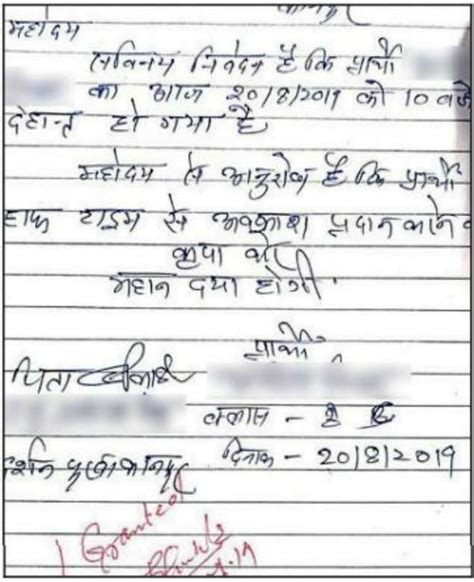 कानपुर
महोदय
सविनय निवेदन है कि प्रार्थी
का आज 20/8/2019 को 10 बजे
देहान्त हो गया है
महोदय से अनुरोध है कि प्रार्थी
हाफ टाइम से अवकाश प्रदान करने
कृपा करें
महान दया होगी
प्रार्थी
पिता
क्लास - 8
दिनांक - 20/8/2019
Granted